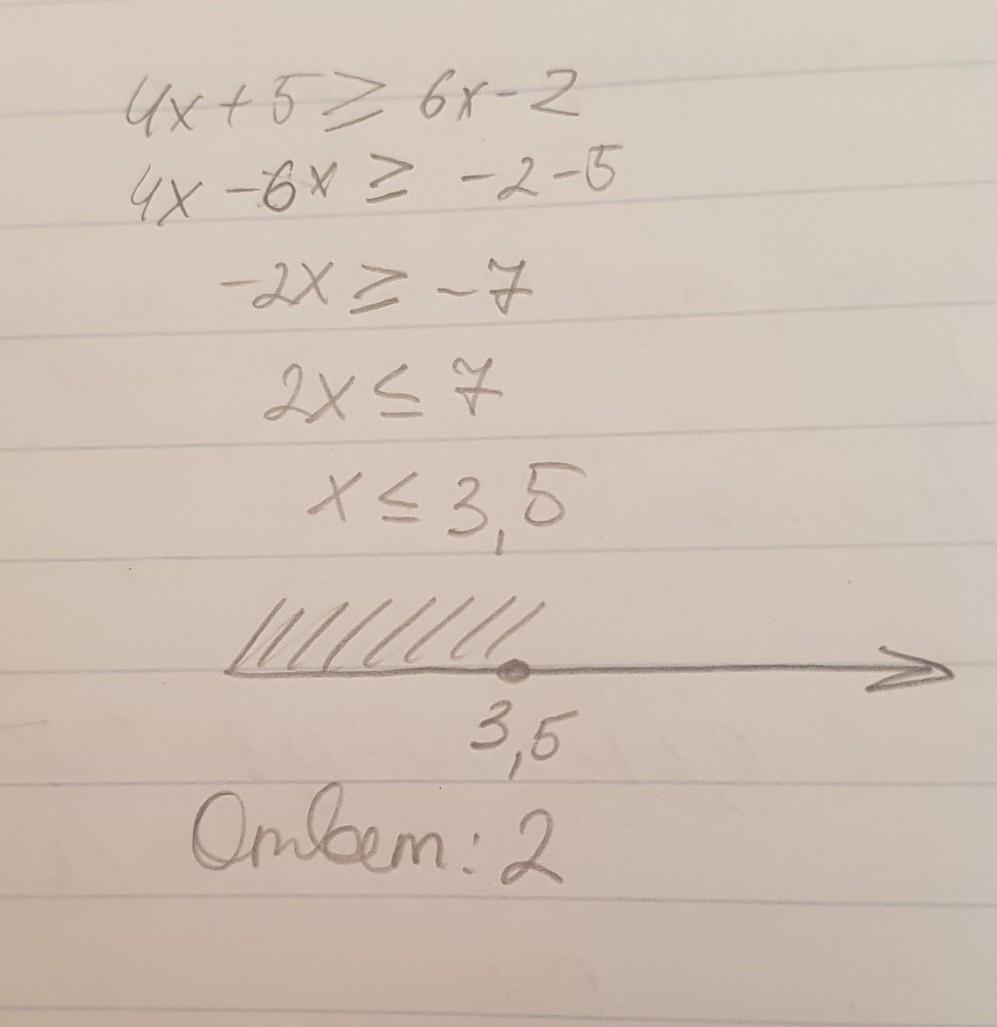 4x + 5 ≥ 6x - 2
4x - 6x ≥ -2 - 5
-2x ≥ -7
2x ≤ 7
x ≤ 3,5
3,5
Ответ: 2